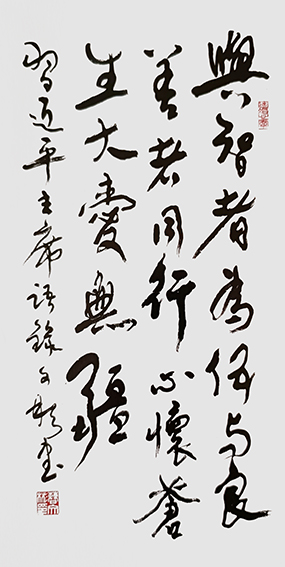 與智者為伍与良
善者同行心懷蒼
生大愛無疆
習近平主席語錄文